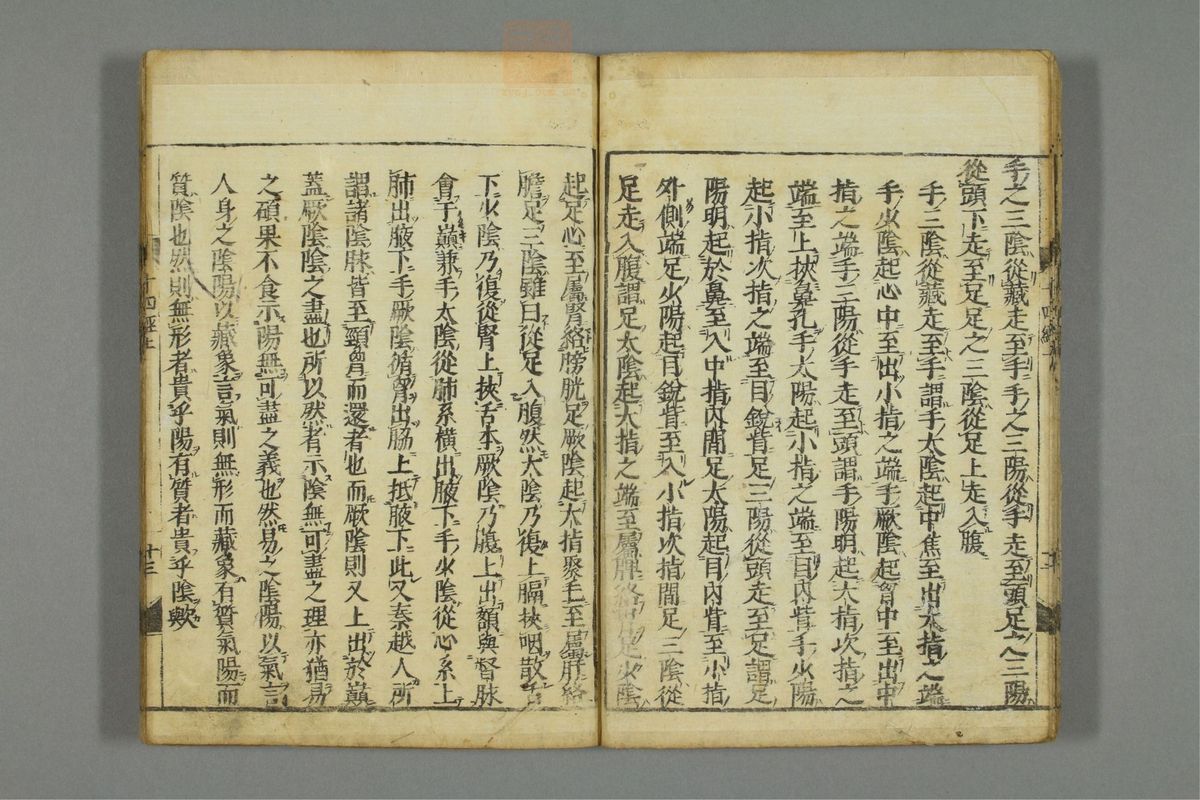 手之三陰從藏走至手手之三陽從手走至頭足之三陽
從頭下走至足足之三陰從足上走入腹
手三陰從藏走至手謂手太陰起中焦至出大指之端
手火陰起心中至出小指之端手厥陰起胷中至出中
指之端手三陽從手走至頭謂手陽明起大指次指之
端至上挾鼻孔手太陽起小指之端至目內眥手火陽
起小指次指之端至目銳眥足三陽從頭走至足謂足
陽明起於鼻至入中指內間足太陽起目內眥至小指
外側端足火陽起目銳眥至入小指次指間足三陰從
足走入腹謂足太陰起大指之端至屬脾絡胃足火陰
起足心至屬腎絡膀胱足厥陰起大指聚毛至屬肝絡
膽足三陰雖曰從足入腹然太陰乃復上膈挾咽散舌
下火陰乃復從腎上挾舌本厥陰乃復上出額與督脉
會于巔兼手太陰從肺系橫出腋下手火陰從心系上
肺出腋下手厥陰循胷出脇上抵腋下此又秦越人所
謂諸陰脉皆至頸胷而還者也而厥陰則又上出於巔
蓋厥陰陰之盡也所以然者示陰無可盡之理亦猶易
之碩果不食示陽無可盡之義也然易之陰陽以氣言
人身之陰陽以藏象言氣則無形而藏象有質氣陽而
質陰也然則無形者貴乎陽有質者貴乎陰歟
十四經上
十三